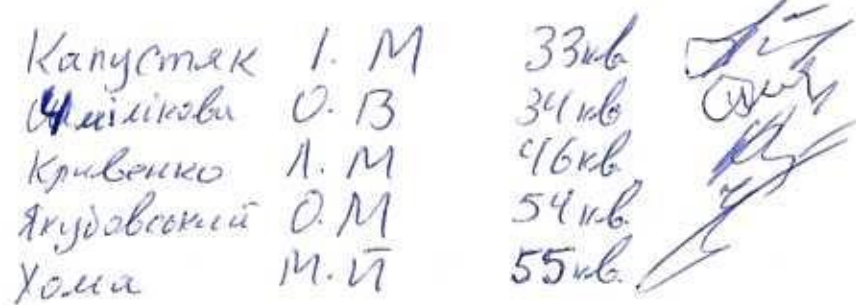 Капустяк І. М 33кв.
О. В 34кв
Кривенко Л. М 46кв.
Якубовський О. М 54кв.
Хома М. Й 55кв.